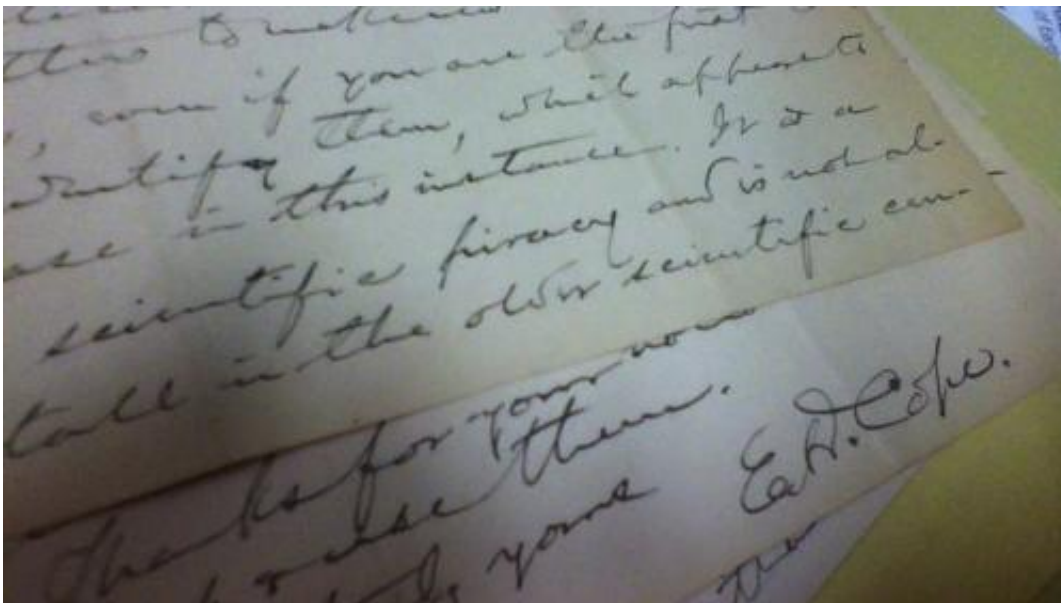 , even if you are the first
identify them, which appears to
ase in this instance. It is a
scientific piracy and is not al-
in the older scientific cen-
Thanks for your
use them.
yours E. D. Cope.